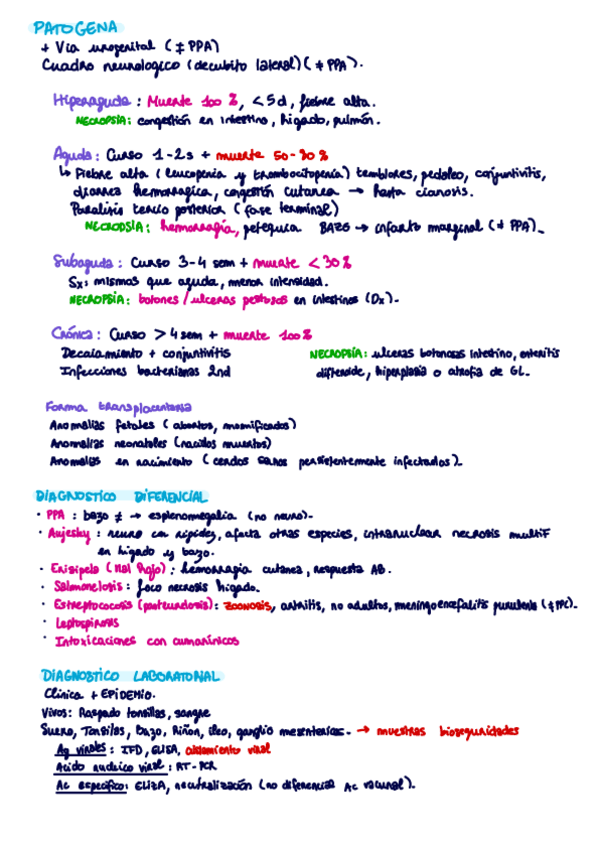 PATOGENA
+ Via urogenital (≠ PPA)
Cuadro neurologico (decubito lateral) (≠ PPA).
Hiperaguda: Muerte 100 %, < 5d, fiebre alta.
NECROPSIA: congestión en intestino, hígado, pulmón.
Aguda: Curso 1-2s + muerte 50-90%
↳ Fiebre alta (leucopenia y trombocitopenia) temblores, pedaleo, conjuntivitis,
diarrea hemorragica, congestión cutanea → hasta cianosis.
Paralisis tercio posterior (fase terminal)
NECROPSIA: hemorragia, petequia BAZO → infarto marginal (≠ PPA).
Subaguda: Curso 3-4 sem + muerte < 30%
Sx: mismos que aguda, menor intensidad.
NECROPSIA: botones/ulceras pestosas en intestinos (Dx).
Crónica: Curso > 4 sem + muerte 100%
Decaimiento + conjuntivitis NECROPSIA: ulceras botonosas intestino, enteritis
Infecciones bacterianas 2nd difteroide, hiperplasia o atrofia de GL.
Forma transplacentaria
Anomalias fetales (abortos, momificados)
Anomalias neonatales (nacidos muertos)
Anomalias en nacimiento (cerdos sanos persistentemente infectados).
DIAGNOSTICO DIFERENCIAL
· PPA: bazo ≠ → esplenomegalia (no neuro).
· Aujesky: neuro con rapidez, afecta otras especies, intranuclear necrosis multiF
en higado y bazo.
· Erisipela (Mal Rojo): hemorragia cutanea, respuesta AB.
· Salmonelosis: foco necrosis higado.
· Estreptococosis: ZOONOSIS, artritis, no adultos, meningoencefalitis purulenta (≠ PPC).
· Leptospirosis
· Intoxicaciones con cumarínicos
DIAGNOSTICO LABORATORIAL
Clínica + EPIDEMIO.
Vivos: Raspado tonsillas, sangre
Suero, Tonsilas, Bazo, Riñon, ileo, ganglio mesentericos. → muestras bioseguridades
Ag virales: IFD, ELISA, aislamiento viral
Acido nucleico viral: RT-PCR
Ac especifico: ELIZA, neutralización (no diferencia Ac vacunal).